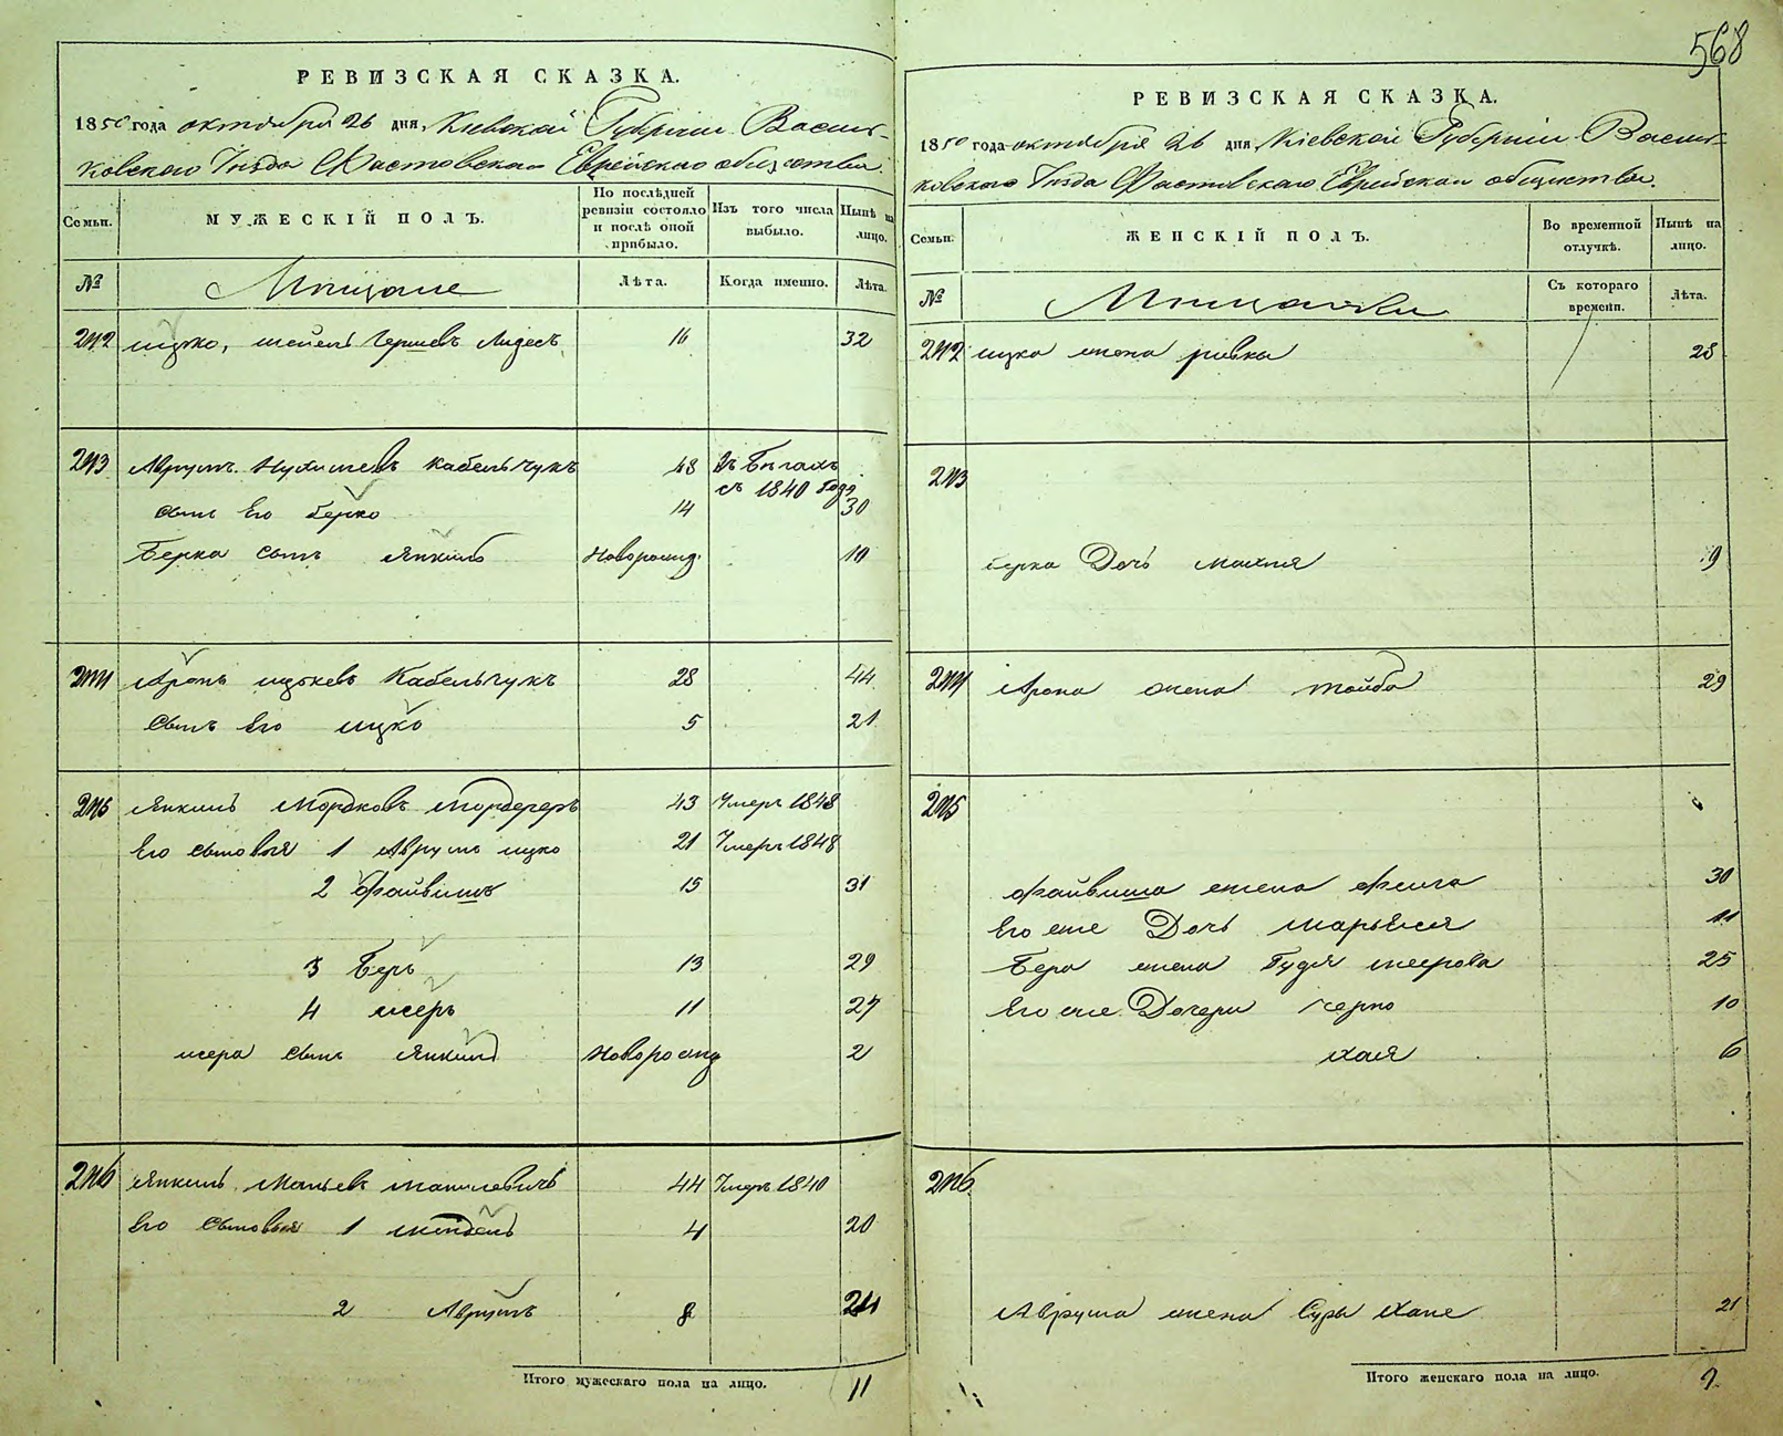 568
РЕВИЗСКАЯ СКАЗКА.
1850 года октября 26 дня, Кіевской Губерніи Василь-
ковского Уезда Фастовского Еврейского общества.
Семьи.
МУЖЕСКІЙ ПОЛЪ.
По послѣдней ревизіи состояло и послѣ оной прибыло.
Изъ того числа выбыло.
Нынѣ на лицо.
№
Мещане
Лѣта.
Когда именно.
Лѣта.
242 Ицко, Гершевъ 16 32
243 Аврумъ Кабельчукъ 48 Въ Бѣгахъ
съ 1840 года
сынъ Его Берко 14 30
Берка сынъ Янкель Новорожд. 10
244 Аронъ Ицкевъ Кабельчукъ 28 44
сынъ Его Ицко 5 21
245 Янкель Мордковъ 43 Умеръ 1848
Его сыновья 1 Аврумъ Ицко 21 Умеръ 1848
2 Файвишъ 15 31
3 Беръ 13 29
4 Исеръ 11 27
Исера сынъ Янкель Новорожд 2
246 Янкель 44 Умеръ 1840
Его сыновья 1 Мендель 4 20
2 Аврумъ 8 24
Итого мужескаго пола на лицо. 11
РЕВИЗСКАЯ СКАЗКА.
1850 года октября 26 дня, Кіевской Губерніи Василь-
ковского Уезда Фастовского Еврейского общества.
Семьи.
ЖЕНСКІЙ ПОЛЪ.
Во временной отлучкѣ.
Нынѣ на лицо.
№
Мещанки
Съ котораго времени.
Лѣта.
242 Ицка жена Ривка 28
243
Берка Дочь Махля 9
244 Арона жена Тойба 29
245
Файвиша жена Фейга 30
Его же Дочь Марьяся 11
Бера жена 25
Его же Дочери Черно 10
Хая 6
246
Аврума жена Сура Хане 21
Итого женскаго пола на лицо. 9.